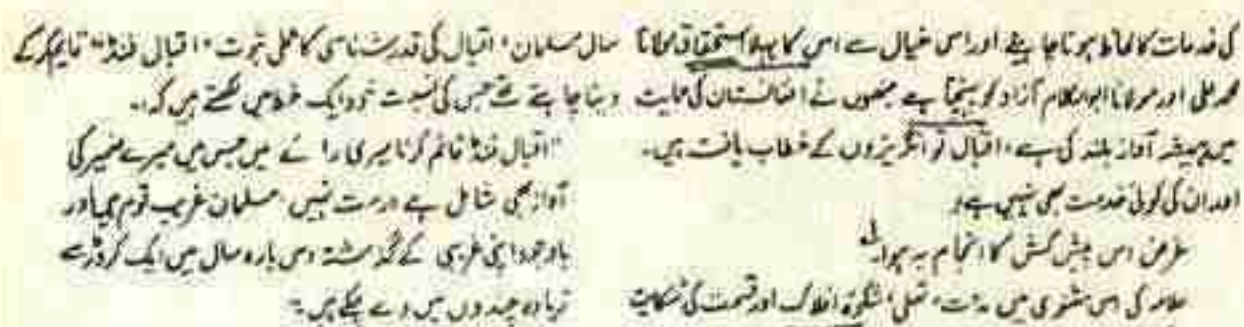 کی خدمات کا لحاظ ہونا چاہیئے اور اسی خیال سے اس کا پہلا استحقاق مولانا
محمد علی اور مولانا ابوالکلام آزاد کو پہنچتا ہے جنھوں نے افغانستان کی حمایت
میں ہمیشہ آواز بلند کی ہے، اقبال تو انگریزوں کے خطاب یافتہ ہیں۔
اور ان کی کوئی خدمت بھی نہیں ہے۔
غرض اس پیش کش کا انجام یہ ہوا
علامہ کی اس مثنوی میں مدت، تعلی، شکوۂ افلاک اور قسمت کی شکایت
سال مسلمان، اقبال کی قدر شناسی کا عملی ثبوت "اقبال فنڈ" قایم کرکے
دینا چاہتے تھے جس کی نسبت خود ایک خط میں لکھتے ہیں کہ:۔
"اقبال فنڈ قائم کرنا میری رائے میں جس میں میرے ضمیر کی
آواز بھی شامل ہے درست نہیں، مسلمان غریب قوم ہے اور
باوجود اپنی غریبی کے گذشتہ دس بارہ سال میں ایک کروڑ سے
زیادہ چندوں میں دے چکے ہیں۔"